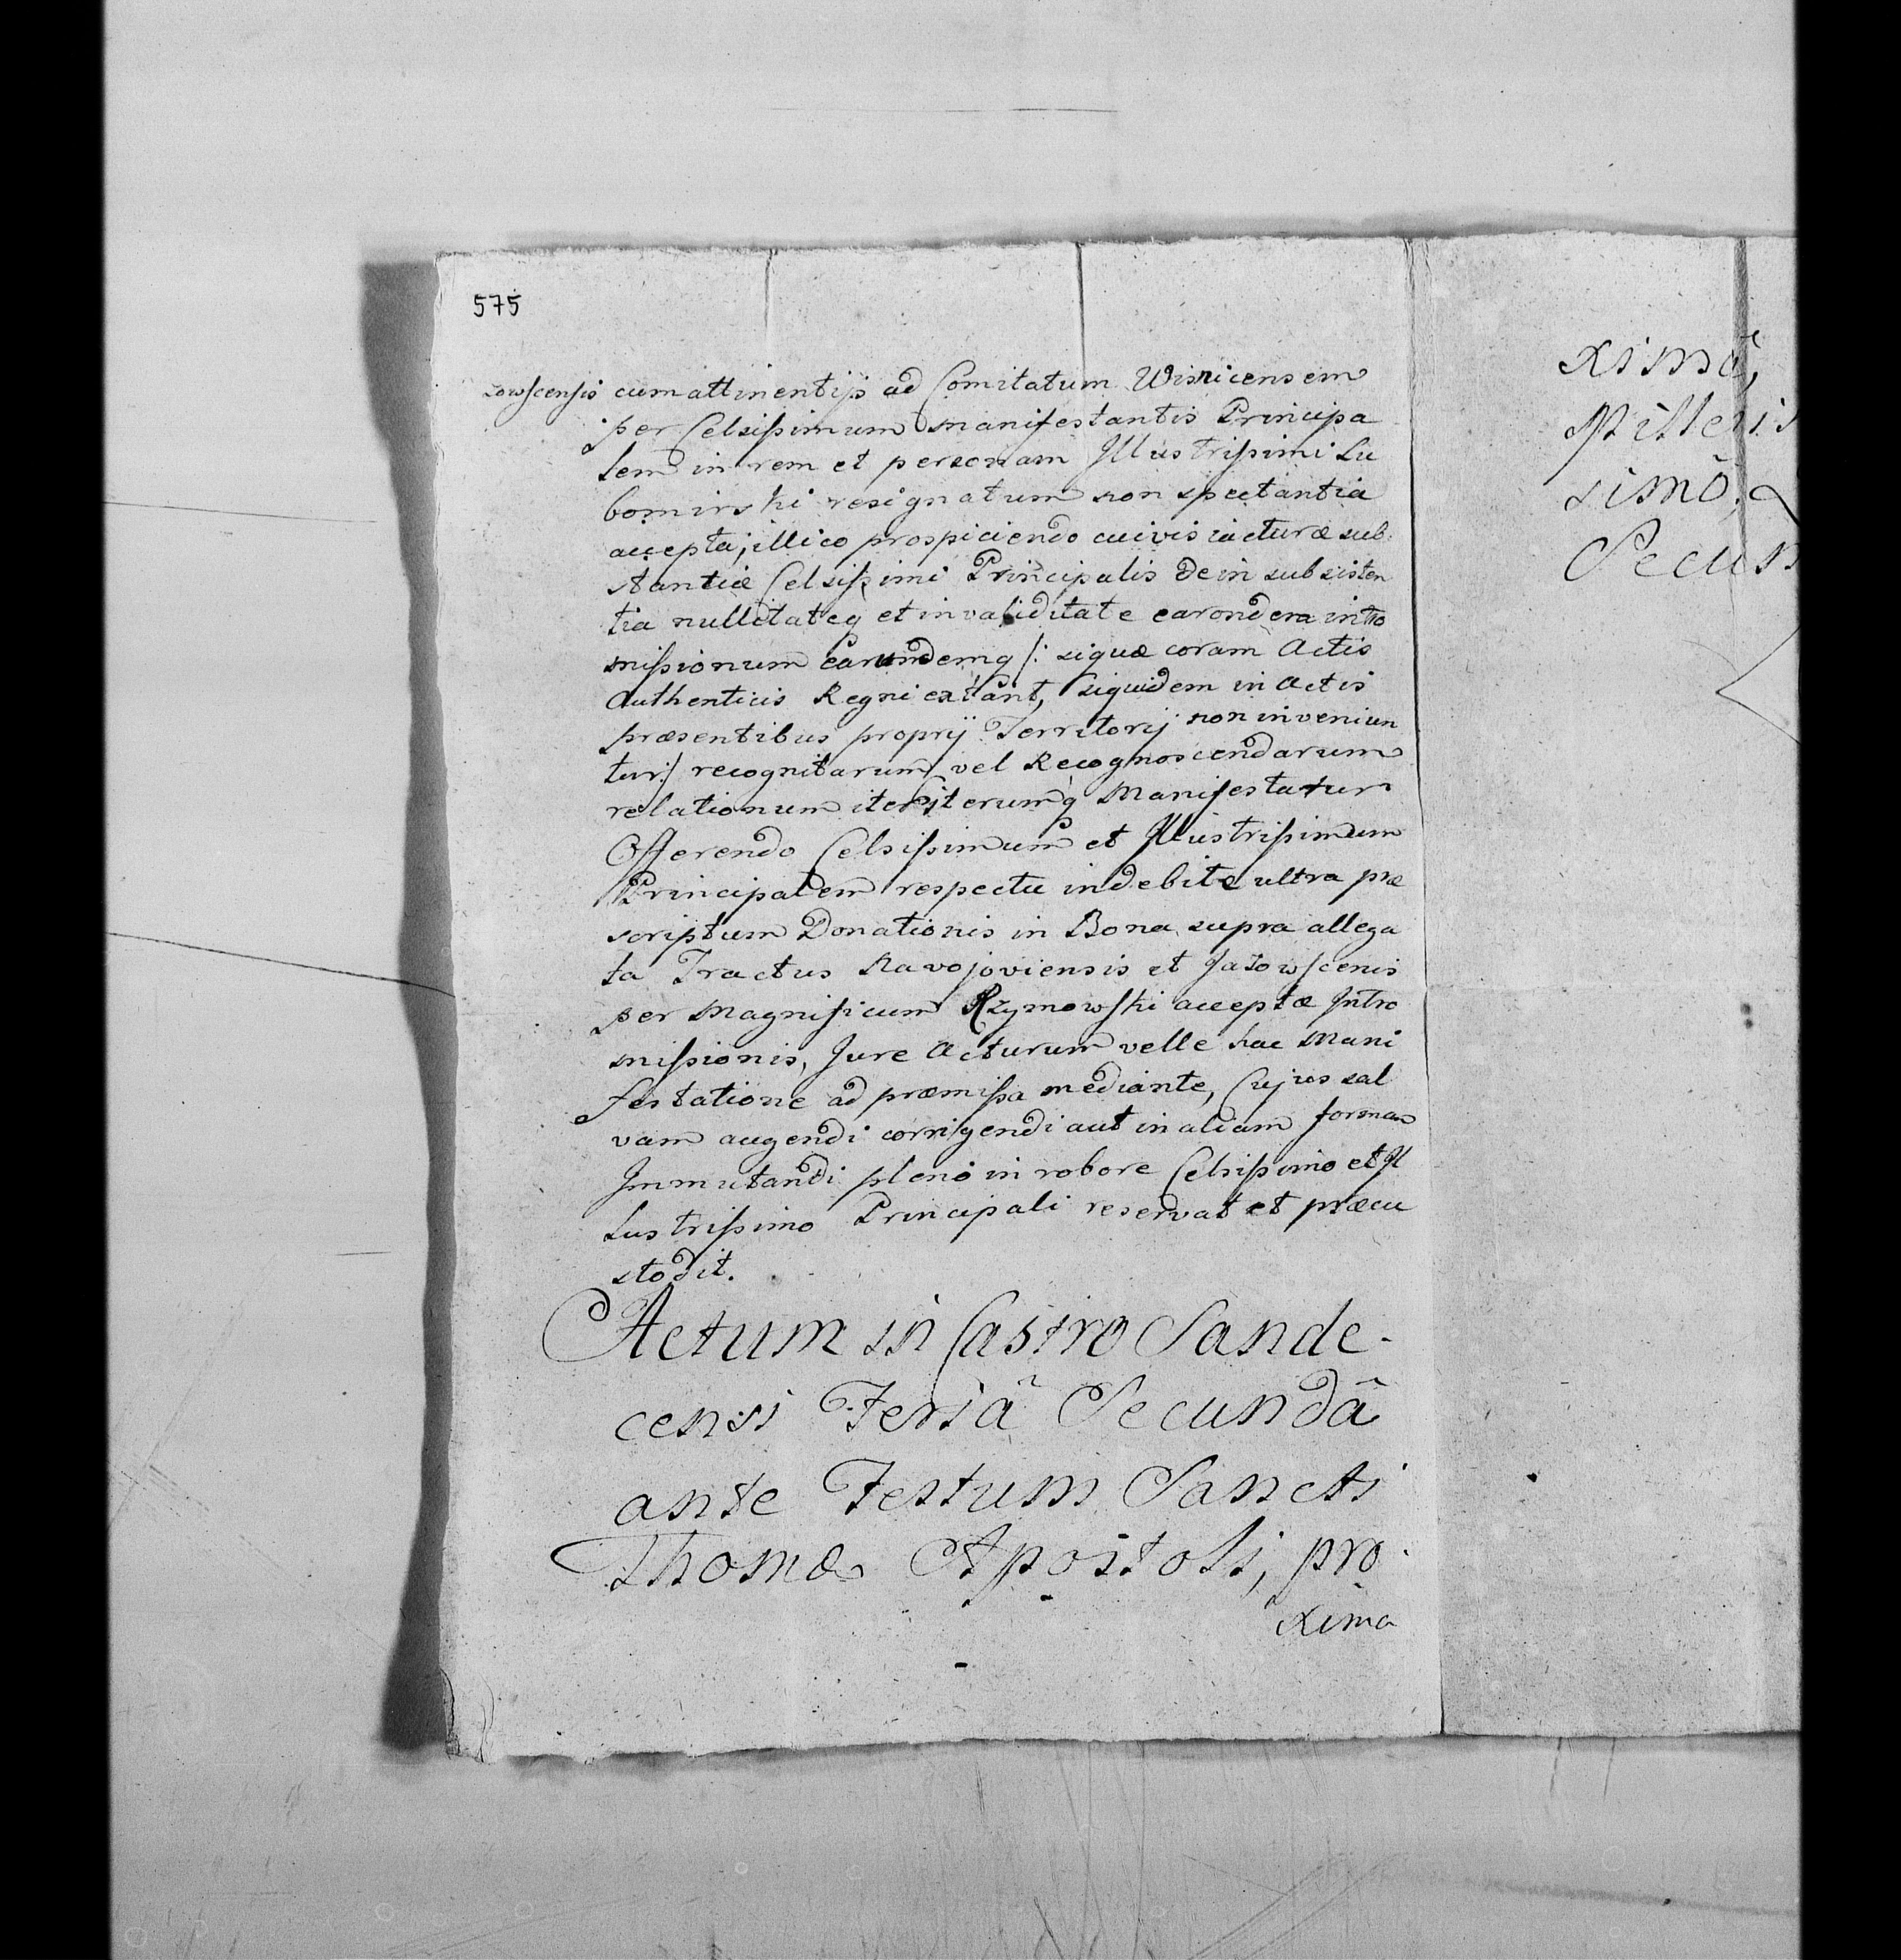 575
zowscensis cum attinentijs ad Comitatum Wisnicensem
per Celsissimum manifestantis Principa
lem in rem et personam Jllustrissimi Lu
bomirski resignatum non spectantia
accepta; illico prospiciendo cuivis iacturæ sub
stantiæ Celsissimi Principalis de in subsisten
tia nullitateq et invaliditate earondem intro
missionum earundemq /: siquæ coram Actis
Authenticis Regni extant, siquidem in Actis
præsentibus proprij Territorij non inveniun
tur:/ recognitarum vel Recognoscendarum
relationum iter iterumq Manifestatur
Offerendo Celsissimum et Jllustrissimum
Principalem respectu indebitæ ultra præ
scriptum Donationis in Bona supra allega
ta Tractus Navojoviensis et Jazowscenis
per Magnificum Rzymowski acceptæ Jntro
missionis, Jure Acturum velle hac Mani
festatione ad præmissa mediante, Cujus sal
vam augendi corrigendi aut in aliam formam
Jmmutandi pleno in robore Celsissimo et Jl
lustrissimo Principali reservat et præcu
stodit.
Actum in Castro Sande-
censi Feriâ Secundâ
ante Festum Sancti
Thomæ Apostoli, pro
xima
ximâ,
Millesis
simô
Secun